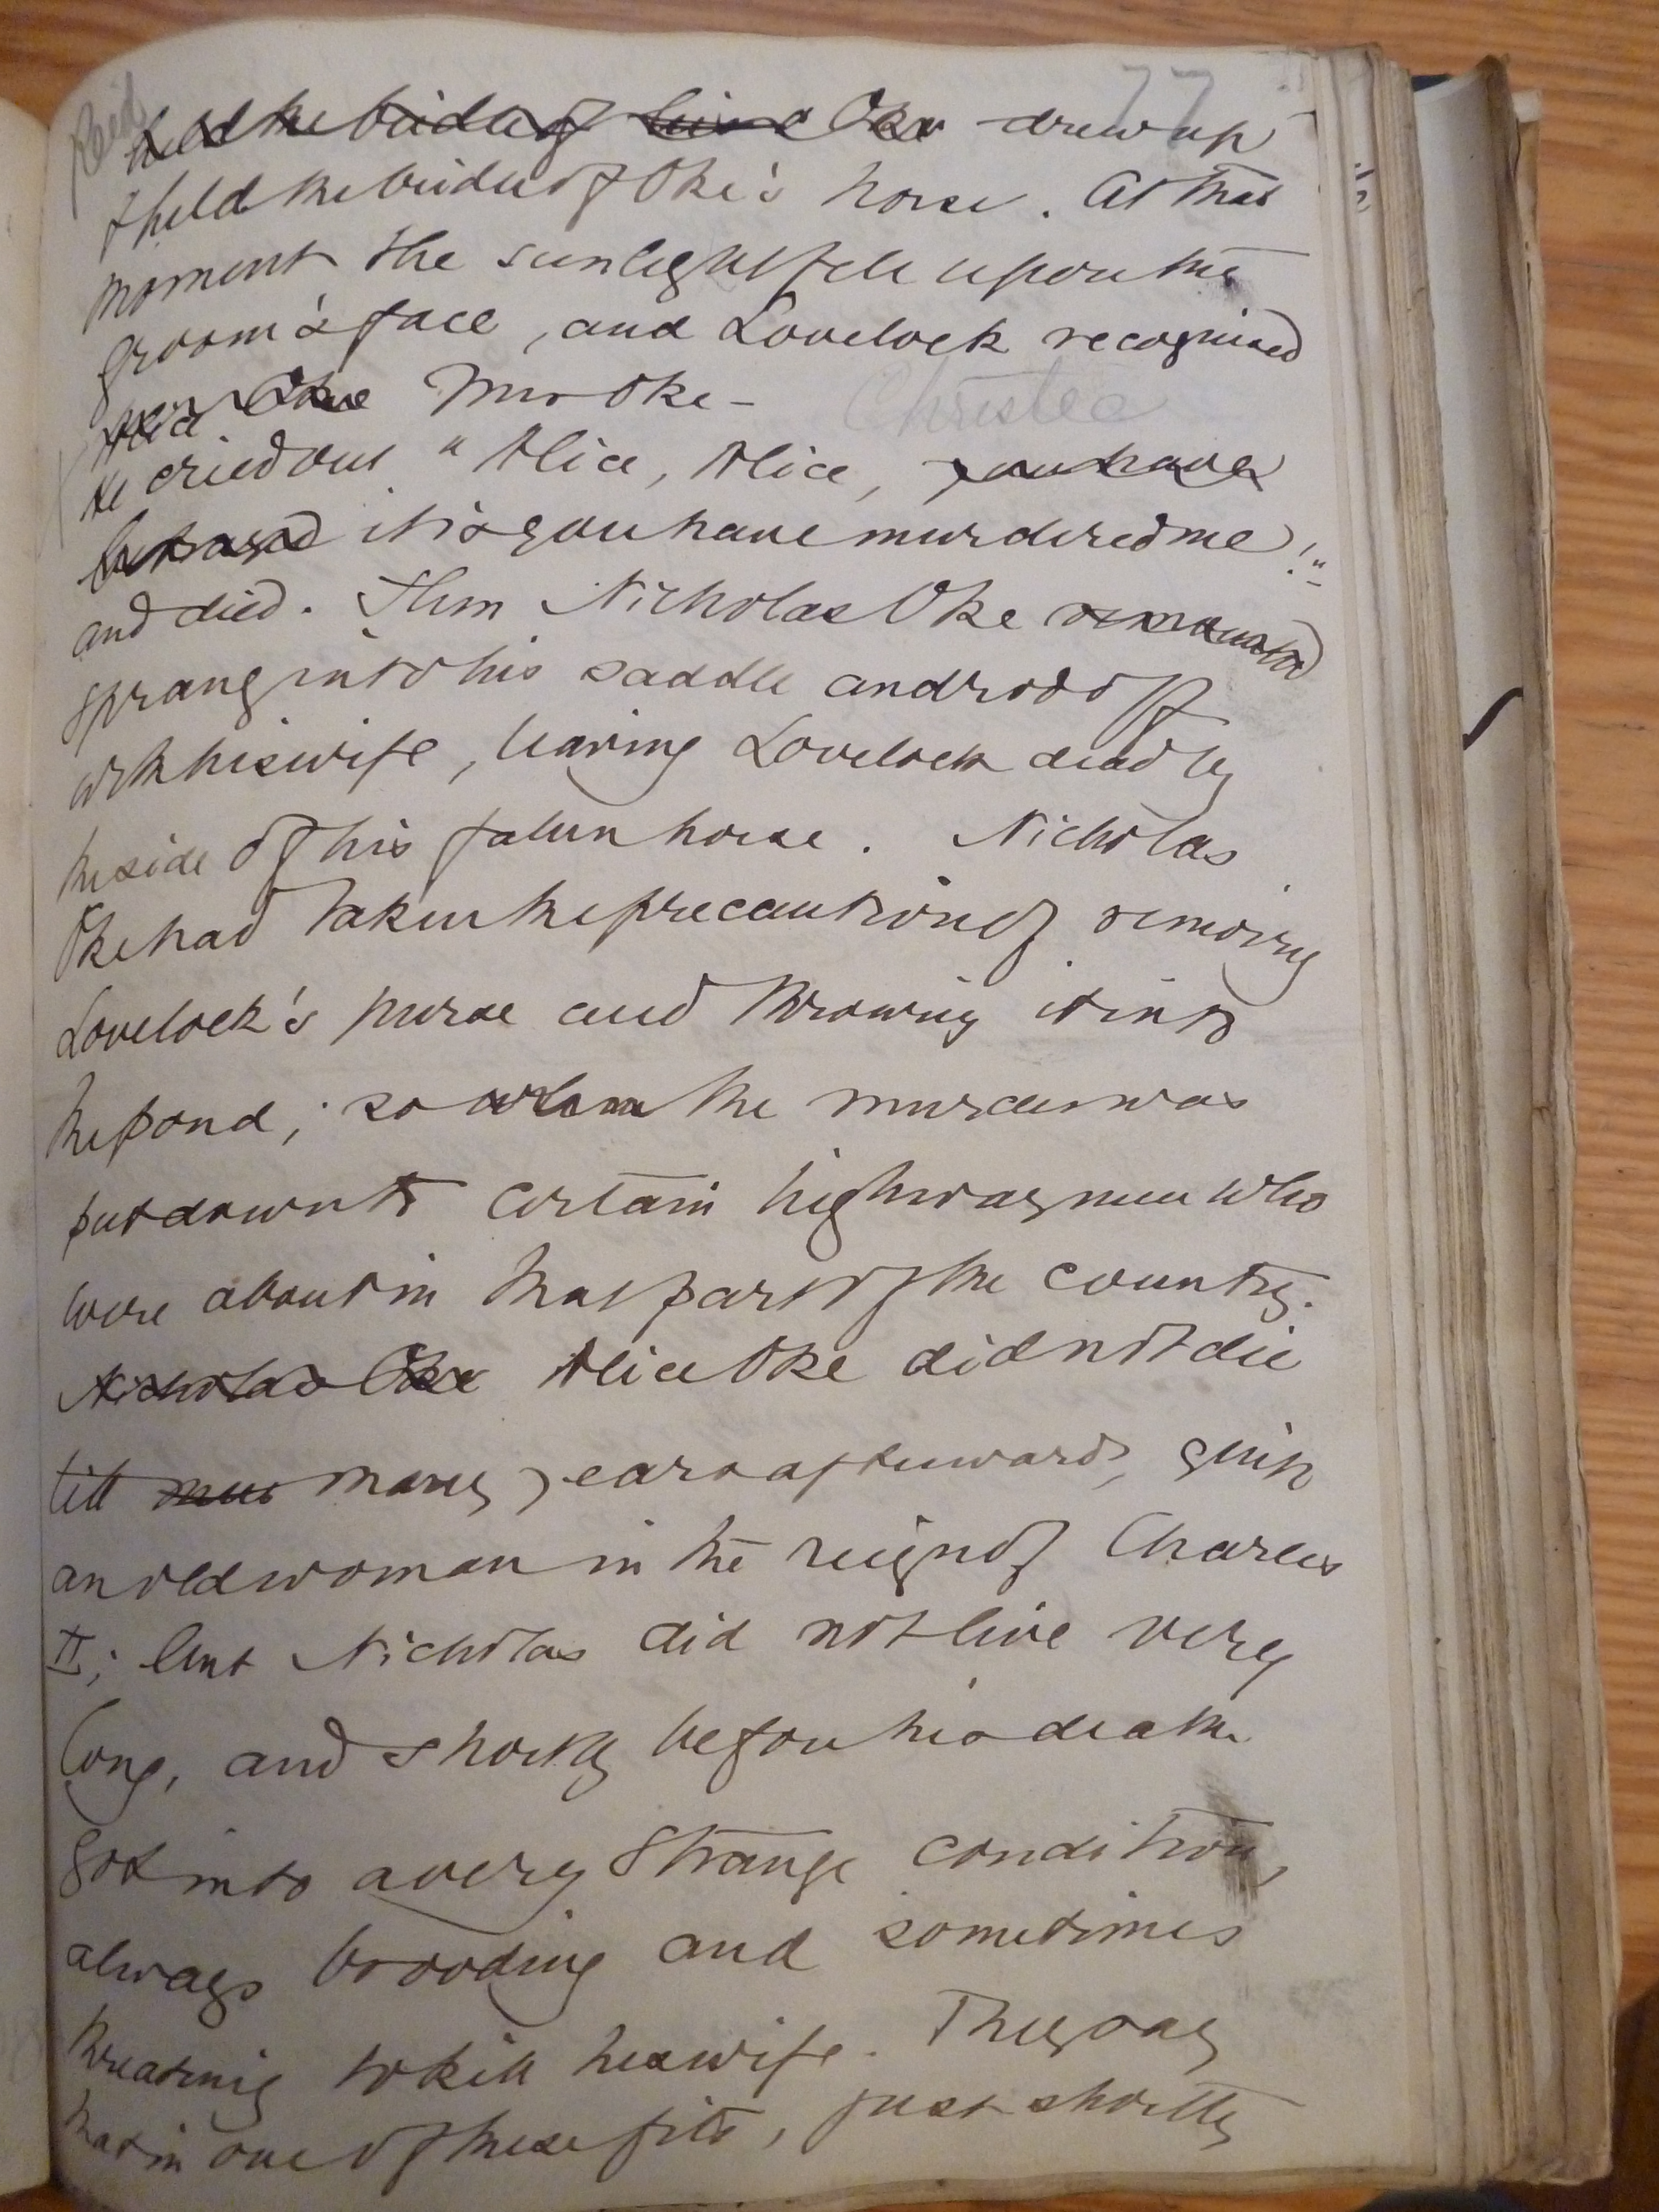 77
Reid
held the bridle of his Oke drew up
& held the bridle of Oke's horse. At that
moment the sunlight fell upon the
groom's face, and Lovelock recognised
Mrs Oke -
Christie
He cried out "Alice, Alice, you have
betrayed it is you have murdered me!"
and died. Then Nicholas Oke remounted
sprang into his saddle and rode off
with his wife, leaving Lovelock dead by
the side of his fallen horse. Nicholas
Oke had taken the precaution of removing
Lovelock's purse and throwing it into
the pond; so when the murder was
put down to certain highwaymen who
were about in that part of the country.
Nicholas Oke Alice Oke did not die
till many years afterwards, quite
an old woman in the reign of Charles
II; but Nicholas did not live very
long, and shortly before his death
got into a very strange condition,
always brooding and sometimes
threatening to kill his wife. They say
that in one of these fits, just shortly